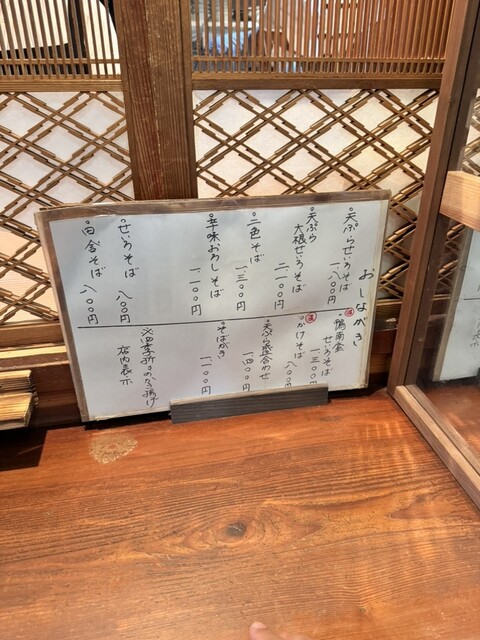 おしながき
・天ぷらせいろそば
一、八〇〇円
・天ぷら
大根せいろそば
二、一〇〇円
・二色そば
一、三〇〇円
・辛味おろしそば
一、一〇〇円
・せいろそば
八〇〇円
・田舎そば
八〇〇円
・温 鴨南蛮
せいろそば
一、三〇〇円
・温 かけそば
八〇〇円
・天ぷら盛合わせ
一、四〇〇円
・そばがき
一、一〇〇円
店内表示